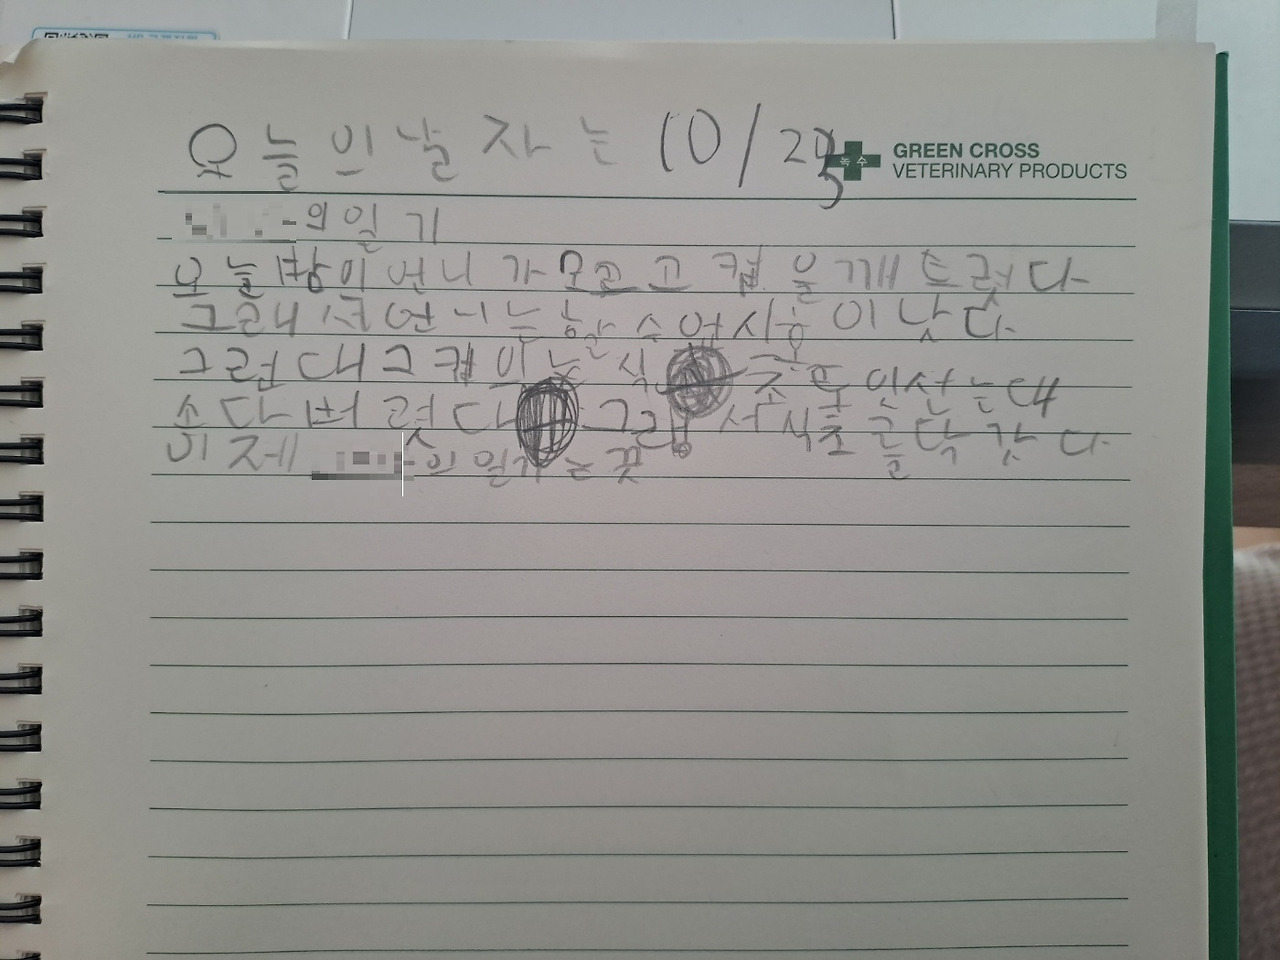 오늘의 날자는 10/25
GREEN CROSS
녹수
VETERINARY PRODUCTS
의 일기
오늘 밤이 언니가 모르고 컵을 깨트렸다
그래서 언니는 할 수 업시 용이 낫다
그런대 그 컵 이는 식 초 투 잇샀는대
쏘다 버렷다 그래서 식초를 닥갓다
이제 의 일기는 끛